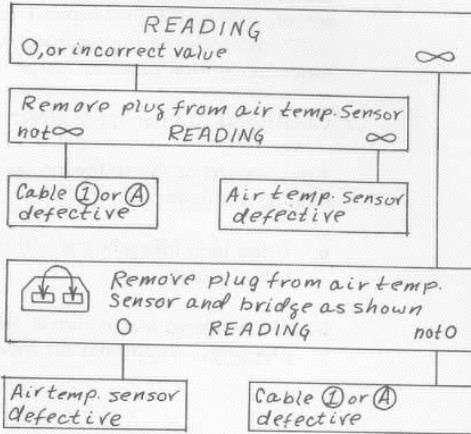 READING
O, or incorrect value ∞
Remove plug from air temp. Sensor
not∞ READING ∞
Cable ① or Ⓐ
defective
Air temp. sensor
defective
Remove plug from air temp.
Sensor and bridge as shown
O READING not O
Air temp. sensor
defective
Cable ① or Ⓐ
defective